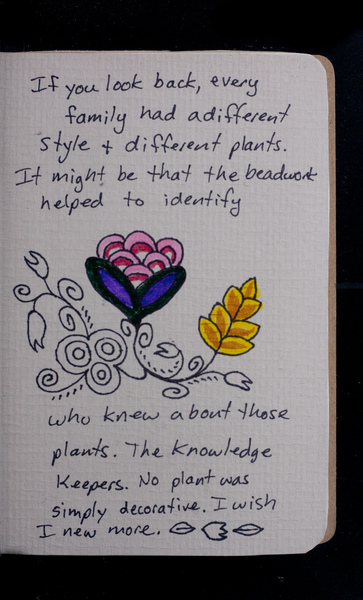 If you look back, every
family had a different
style + different plants.
It might be that the beadwork
helped to identify
who knew about those
plants. The Knowledge
Keepers. No plant was
simply decorative. I wish
I new more.